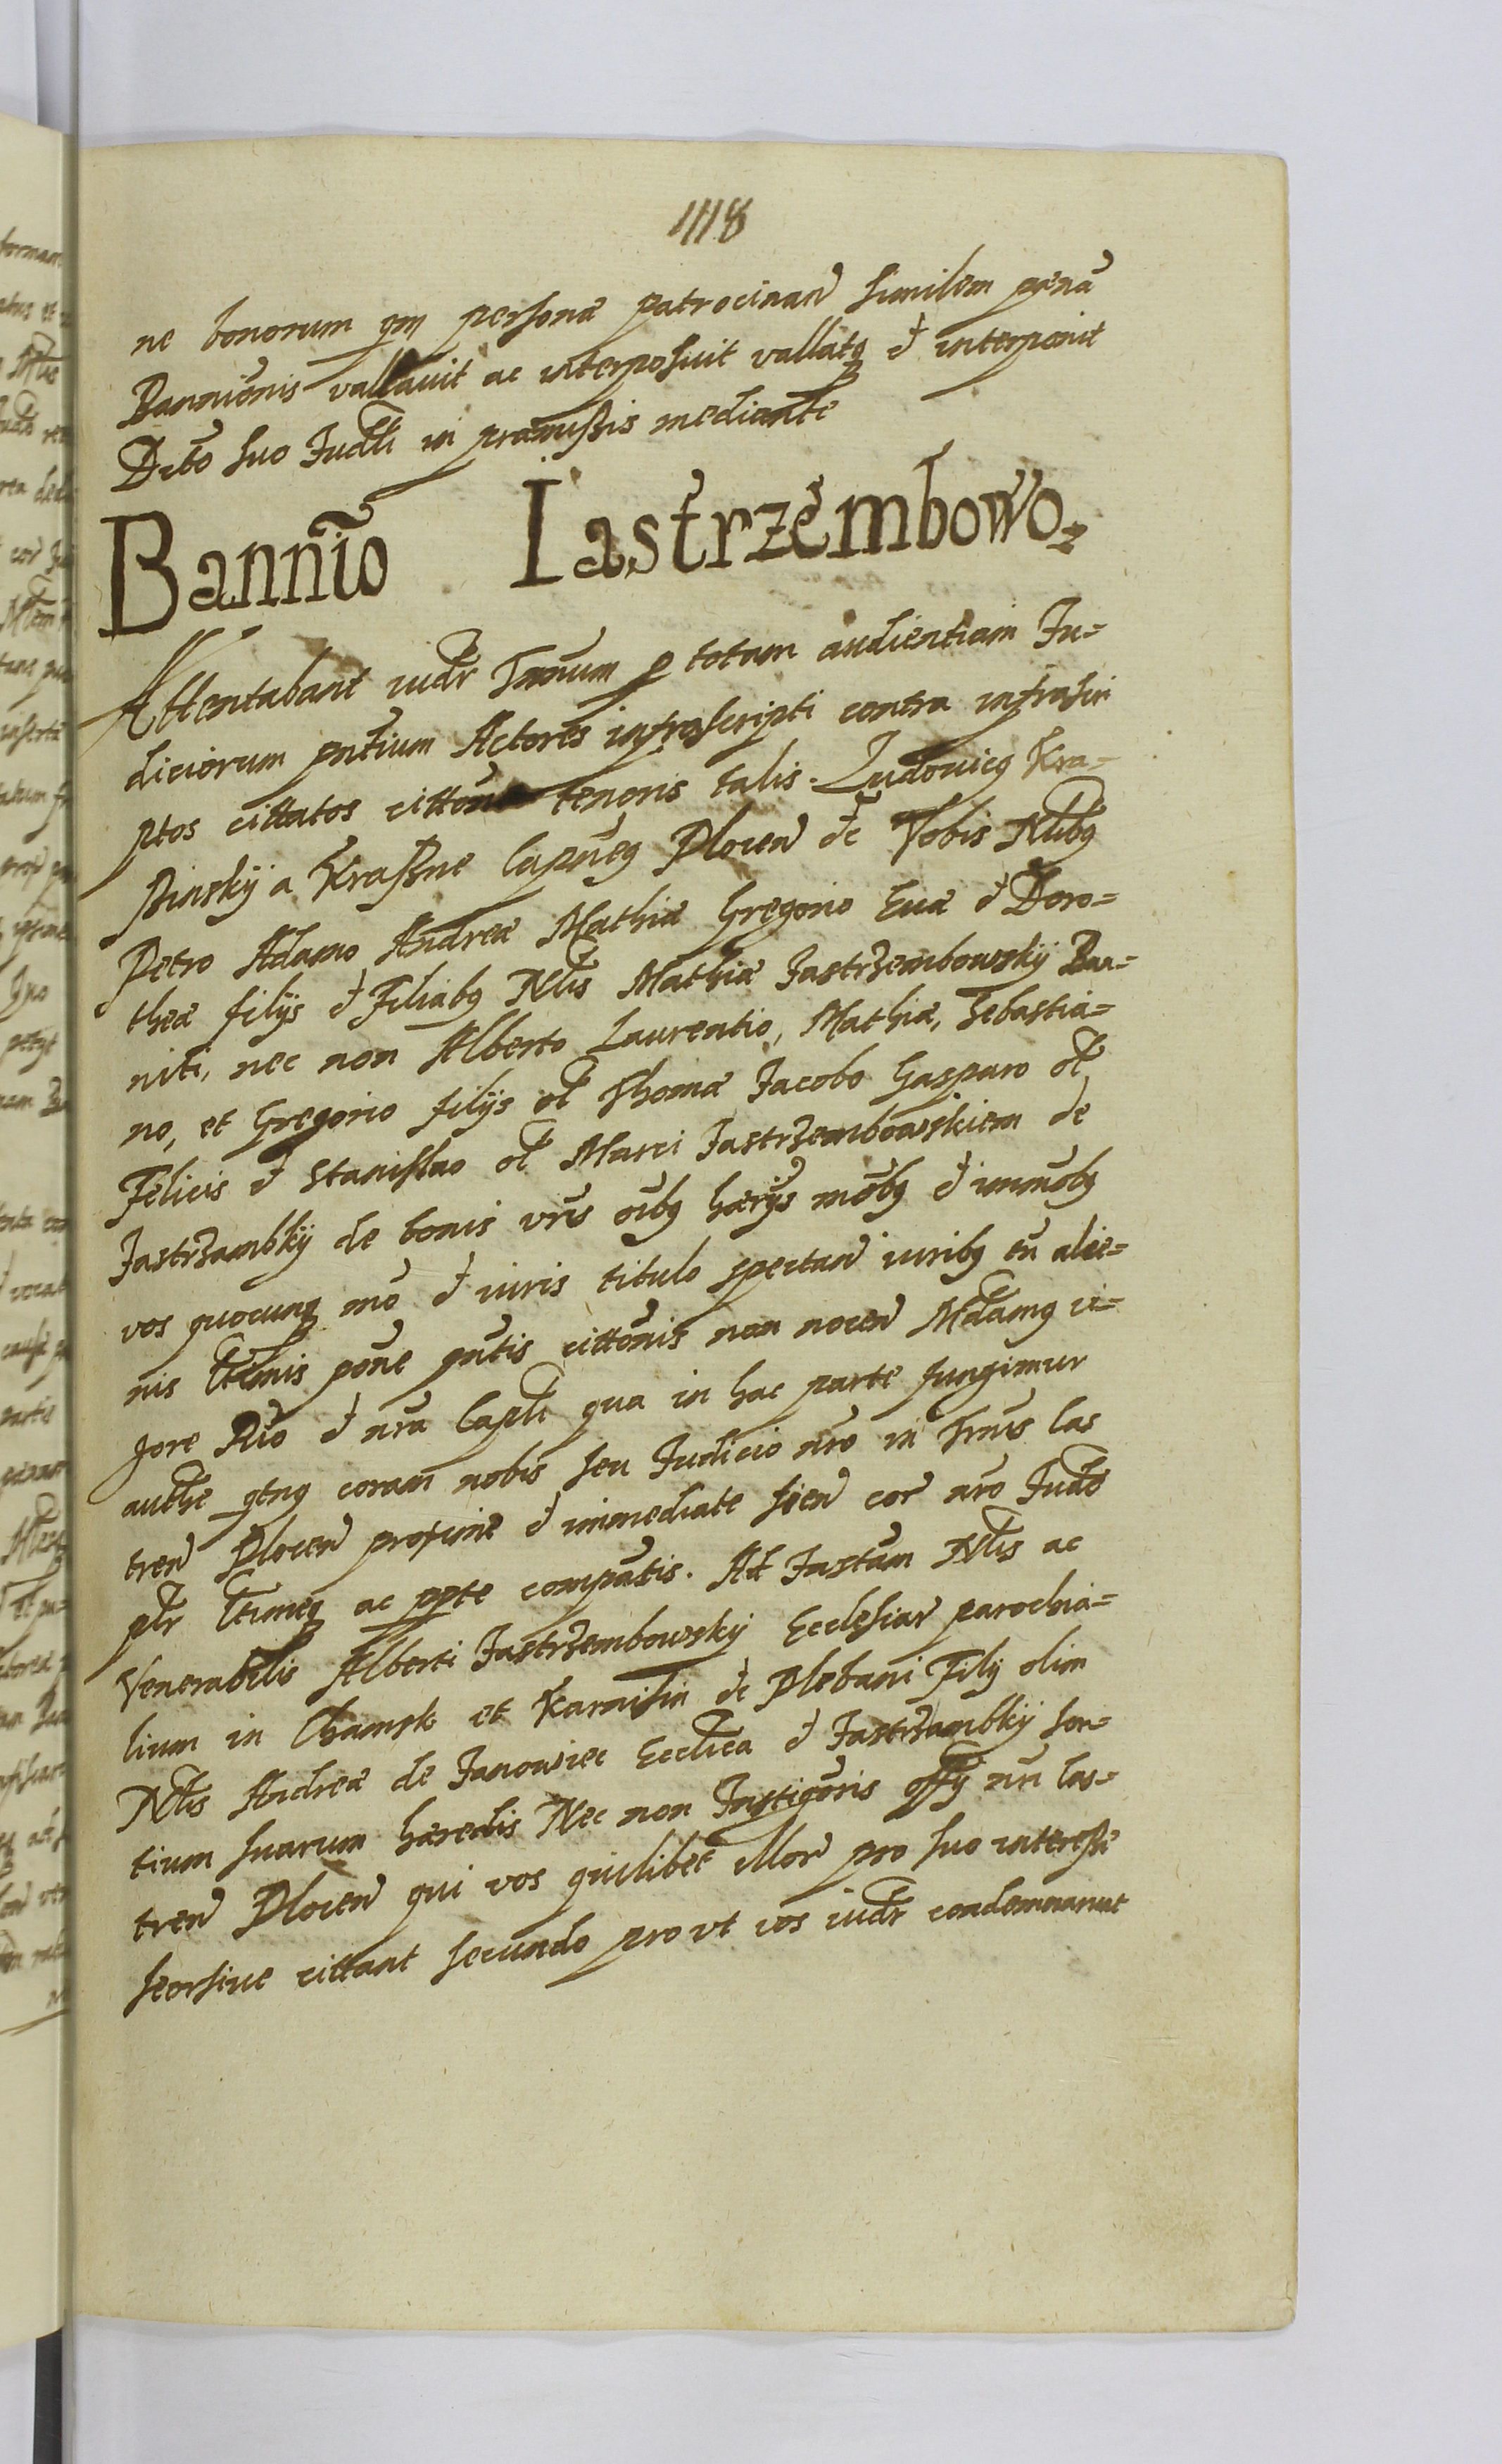 1118
ne bonorum qm personæ patrocinand similem pœnā
Bannionis vallavit ac interposuit vallatq et interponit
Dcto suo Judli in præmissis mediante
Bannitio Iastrzembowo.
Attentabant iudr Tnnum p totam audientiam Iu=
diciorum pntium Actores infrascripti contra infrascri
ptos cittatos cittone tenoris talis. Ludovicq Kra=
sinsky a Krassne Capneq Plocen etc Vobis Nlibq
Petro Adamo Andreæ Mathiæ Gregorio Euæ et Doro=
theæ filijs et Filiabq Nlis Mathiæ Jastrzembowskij Ban=
niti, nec non Alberto Laurentio, Mathiæ, Sebastia=
no, et Gregorio filijs ol Thomæ Jacobo Gasparo ol
Felicis et Stanislao ol Marci Jastrzembowskiem de
Jastrzambkij de bonis vris oibq hærijs mobq et immobq
vos quocunq mo et iuris titulo spectan iuribq en alie=
nis ttimis pone pntis cittonis non nocen Mdamq vi=
gore Rio et nra Capli qua in hac parte fungimur
authe qtnq coram nobis seu Judicio nro in Tnnis Cas
tren Plocen proxime et immediate hic cor nro Judo
plr ttimeq ac ppte compatis. Ad Instam Nlis ac
Venerabilis Alberti Jastrzembowsky Ecclesiar parochia=
lium in Chamsk et Karnisin etc Plebani Filij olim
Nlis Andreæ de Janowiec Ecclica et Jastrzambkij sor=
tium suarum hæredis Nec non Instigoris offij nri Cas=
tren Plocen qui vos quilibet illor pro suo interesse
seorsive cittant secundo pro vt vos iudr condemnarunt